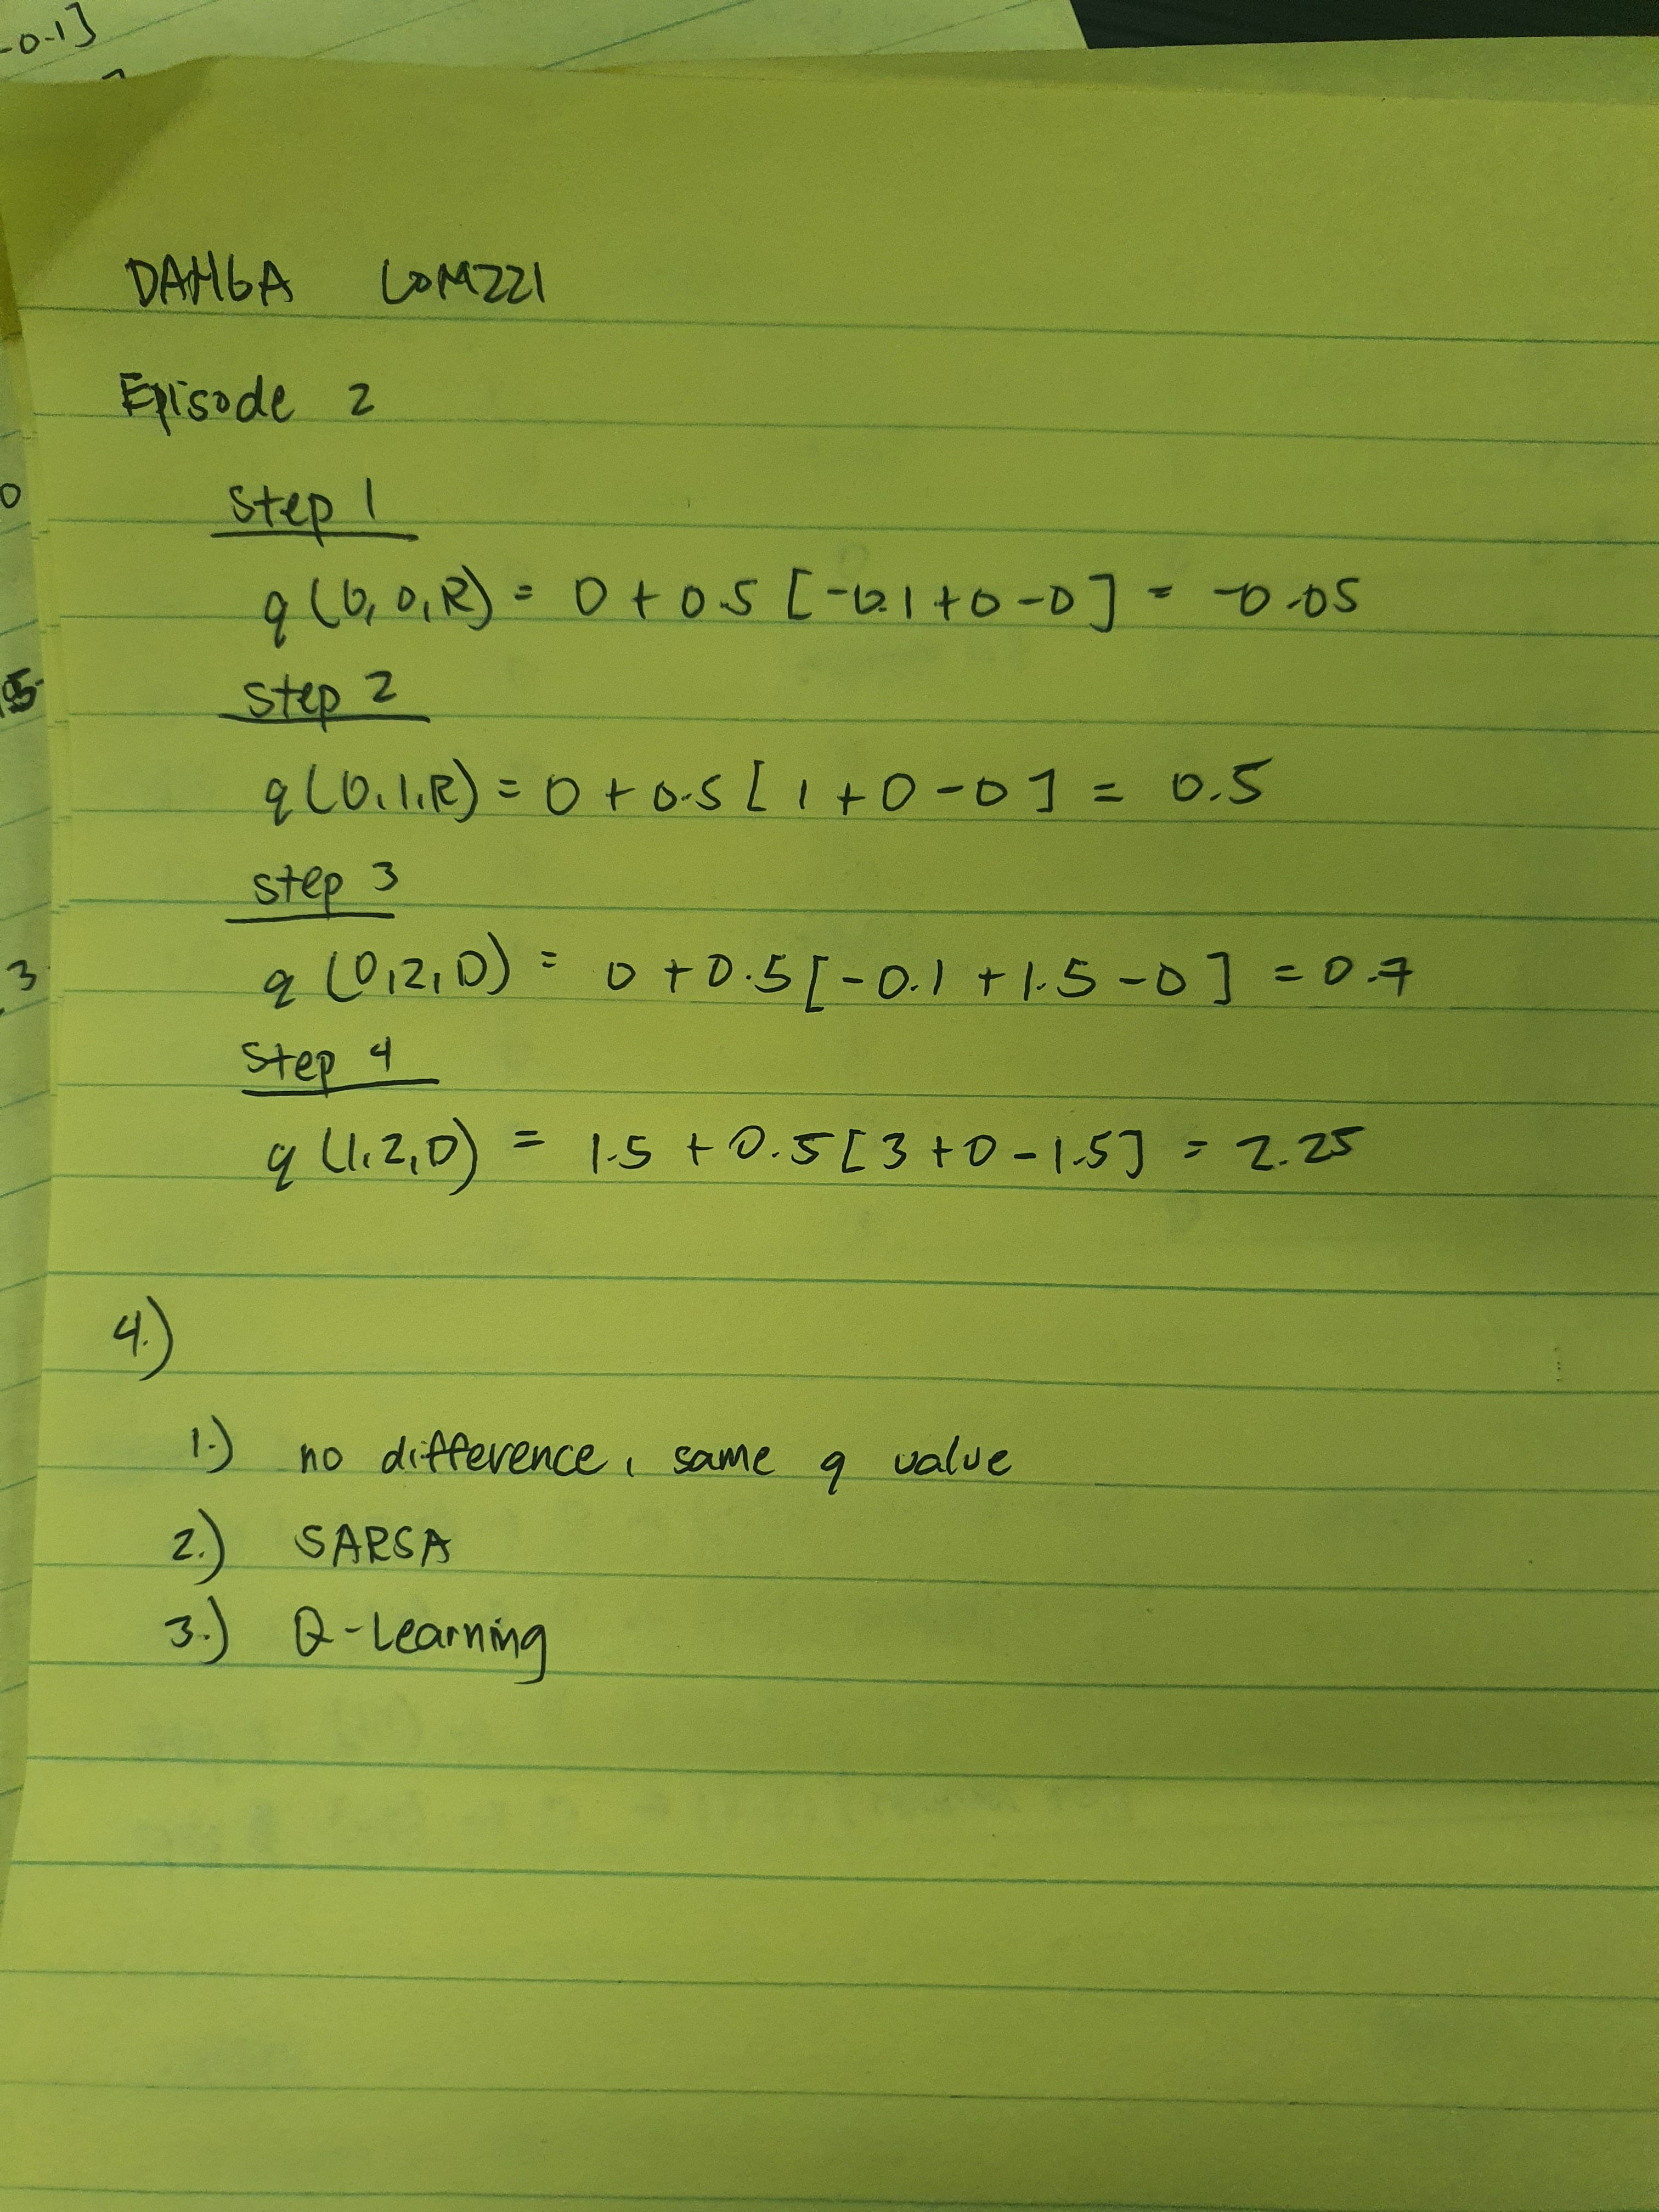 -0.1]
DAMBA COM221
Episode 2
0
Step 1
q(0,0,R) = 0 + 0.5 [-0.1+0-0] = -0.05
5
Step 2
q(0,1,R) = 0 + 0.5 [1+0-0] = 0.5
step 3
3
q(0,2,D) = 0 + 0.5[-0.1 + 1.5 - 0] = 0.7
Step 4
q(1,2,D) = 1.5 + 0.5[3+0-1.5] = 2.25
4.)
1.) no difference, same q value
2.) SARSA
3.) Q-Learning